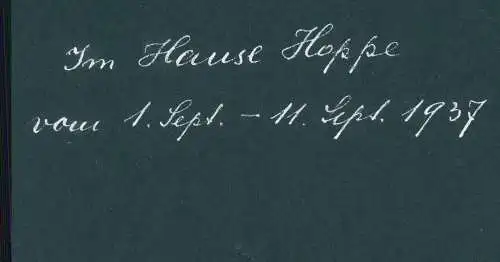 Im Hause Hoppe
vom 1. Sept. – 11. Sept. 1937